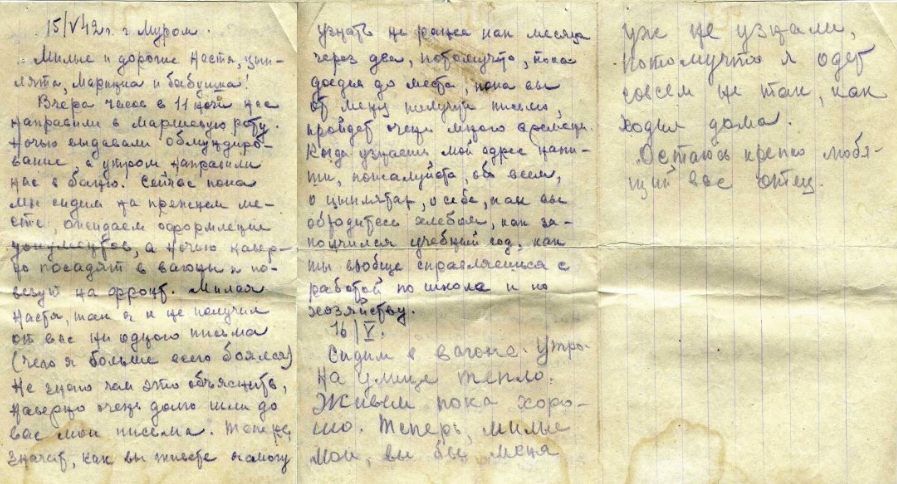 15/V 42 г. г. Муром.
Милые и дорогие Настя, цып-
лята, Маришка и бабушка!
Вчера часов в 11 ночи нас
направили в маршевую роту.
Ночью выдавали обмундиро-
вание, а утром направили
нас в баню. Сейчас пока
мы сидим на прежнем ме-
сте, ожидаем оформления
документов, а ночью навер-
но посадят в вагоны и по-
везут на фронт. Милая
Настя, так я и не получил
от вас ни одного письма
(чего я больше всего боялся)
Не знаю чем это объяснить,
наверно очень долго шли до
вас мои письма. Теперь,
значит, как вы живете я смогу
узнать не ранее как месяца
через два, потомучто, пока
доедем до места, пока вы
от меня получите письмо,
пройдет очень много времени.
Когда узнаешь мой адрес напи-
ши, пожалуйста, обо всем,
о цыплятах, о себе, как вы
обходитесь хлебом, как за-
кончился учебный год, как
ты вообще справляешься с
работой по школе и по
хозяйству.
16/V.
Сидим в вагоне. Утро.
На улице тепло.
Живем пока хоро-
шо. Теперь, милые
мои, вы бы меня
уже не узнали,
потомучто я одет
совсем не так, как
ходил дома.
Остаюсь крепко любя-
щий вас отец.